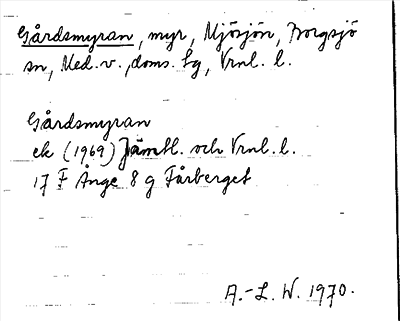 Gårdsmyran, myr, Mjösjön, Borgsjö
sn, Med. v., doms. sg, Vrnl. l.
Gårdsmyran
ek (1969) Jämtl. och Vrnl. l.
17 F Ånge 8 g Fårberget
A.-L. W. 1970.